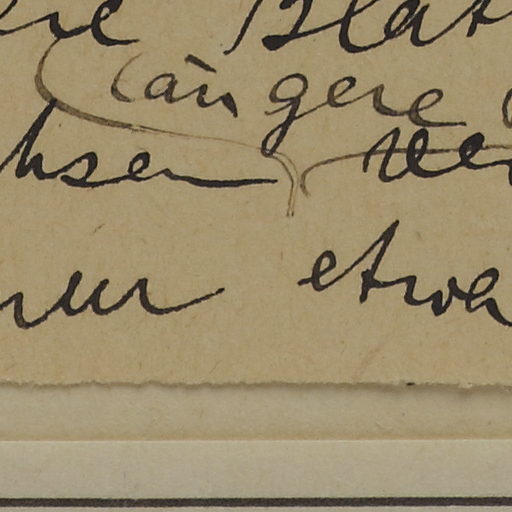 ere Blät
längere
hsen
nur etwa